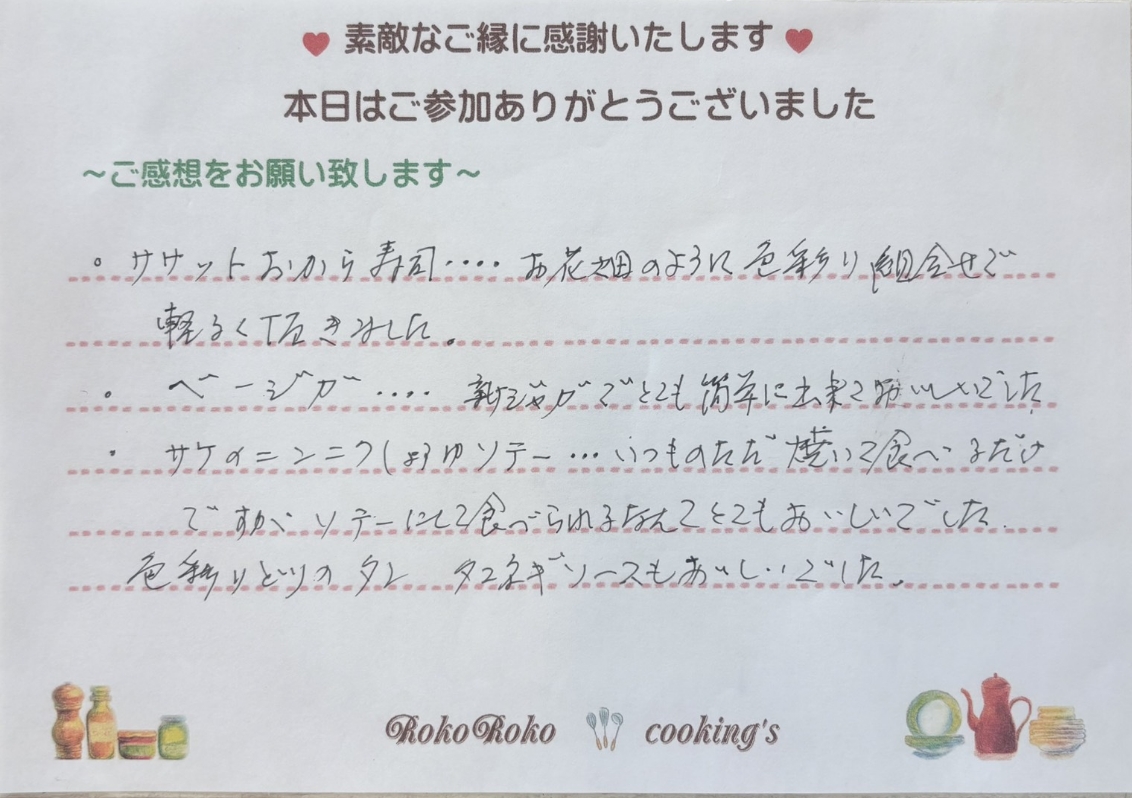 素敵なご縁に感謝いたします
本日はご参加ありがとうございました
~ご感想をお願い致します~
・ササットおから寿司‥‥お花畑のように色彩り組合せで
軽るく頂きました。
・ベージガ‥‥新ジャガでとても簡単に出来て おいしいでした
・サケのニンニクしょうゆソテー…いつものただ焼いて食べるだけ
ですが ソテーにして食べられるなんてとてもおいしいでした.
色彩りどりのタレ タマネギソースもおいしいでした。
RokoRoko cooking's